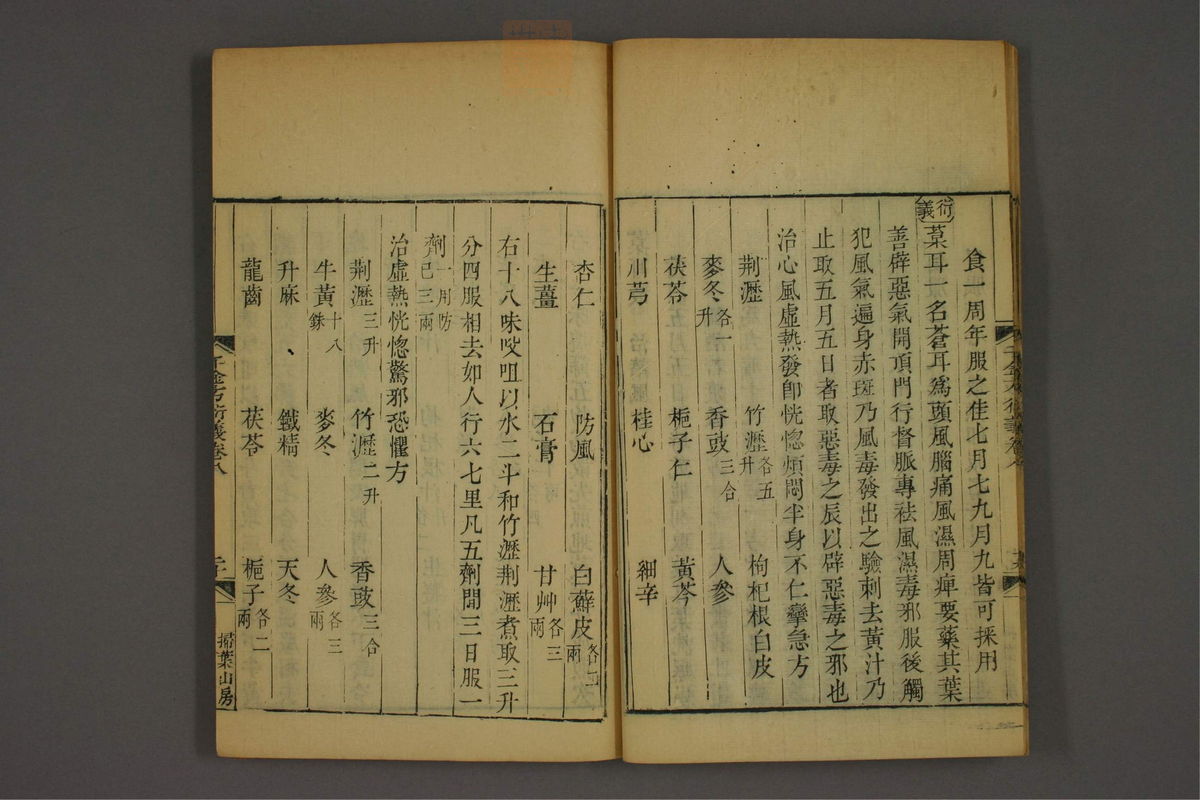 食一周年服之佳七月七九月九皆可採用
衍義
葈耳一名蒼耳爲頭風腦痛風濕周痺要藥其葉
善辟惡氣開頂門行督脈專祛風濕毒邪服後觸
犯風氣遍身赤斑乃風毒發出之驗刺去黃汁乃
止取五月五日者取惡毒之辰以辟惡毒之邪也
治心風虛熱發卽恍惚煩悶半身不仁攣急方
荆瀝 竹瀝各五升 枸杞根白皮
麥冬各一升 香豉三合 人參
茯苓 梔子仁 黃芩
川芎 桂心 細辛
杏仁 防風 白蘚皮各二兩
生薑 石膏 甘艸各三兩
右十八味㕮咀以水二斗和竹瀝荆瀝煮取三升
分四服相去如人行六七里凡五劑間三日服一
劑一用防已三兩
治虛熱恍惚驚邪恐懼方
荆瀝三升 竹瀝二升 香豉三合
牛黃十八銖 麥冬 人參各三兩
升麻 鐵精 天冬
龍齒 茯苓 梔子各二兩
千金方衍義卷八
掃葉山房